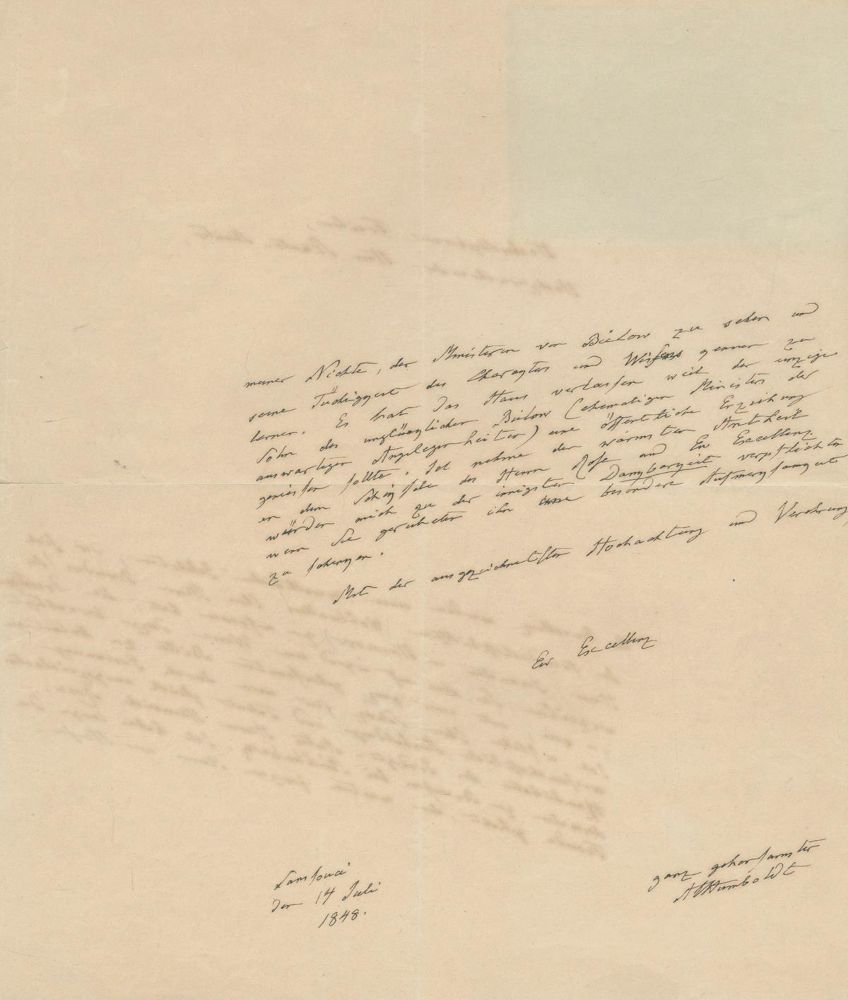 meiner Nichte, der Ministerin von Bülow zu sehen und
seine Tüchtigkeit des Charakters und Wissens genau zu
kennen. Es hat das Haus verlassen weil der einzige
Sohn des unglücklichen Bülow (ehemaligen Ministers der
auswärtigen Angelegenheiten) eine öffentliche Erziehung
geniessen sollte. Ich nehme den wärmsten Antheil
an dem Schicksale des Herrn und Ew Excellenz
würden mich zu der innigsten Dankbarkeit verpflichten
wenn Sie geruheten ihm eine besondere Aufmerksamkeit
zu schenken.
Mit der ausgezeichnetsten Hochachtung und Verehrung
Ew Excellenz
ganz gehorsamster
AvHumboldt
Sanssouci
den 14 Juli
1848.